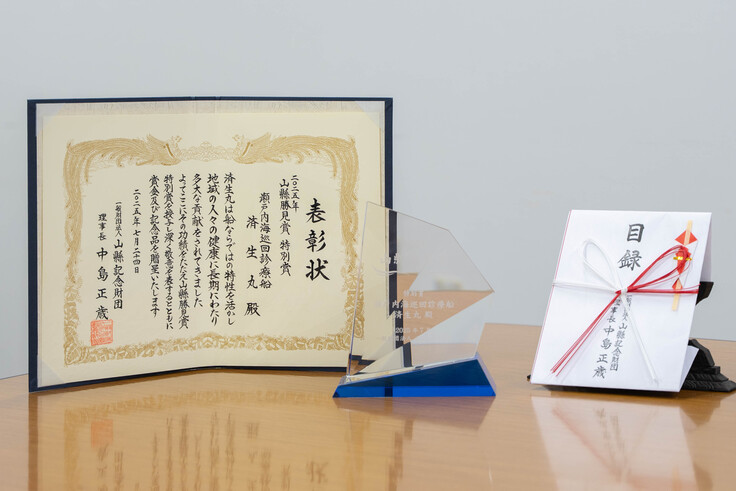 表彰状
二〇二五年
山縣勝見賞 特別賞
瀬戸内海巡回診療船
済生丸 殿
済生丸は船ならではの特性を活かし
地域の人々の健康に長期にわたり
多大な貢献をされてきました
よってここにその功績をたたえ山縣勝見賞
特別賞を授与し深く敬意を表するとともに
賞金及び記念品を贈呈いたします
二〇二五年 七月 二四日
一般財団法人 山縣記念財団
理事長 中島正歳
内海巡回診療船
済生丸 殿
目録
山縣記念財団
理事長 中島正歳